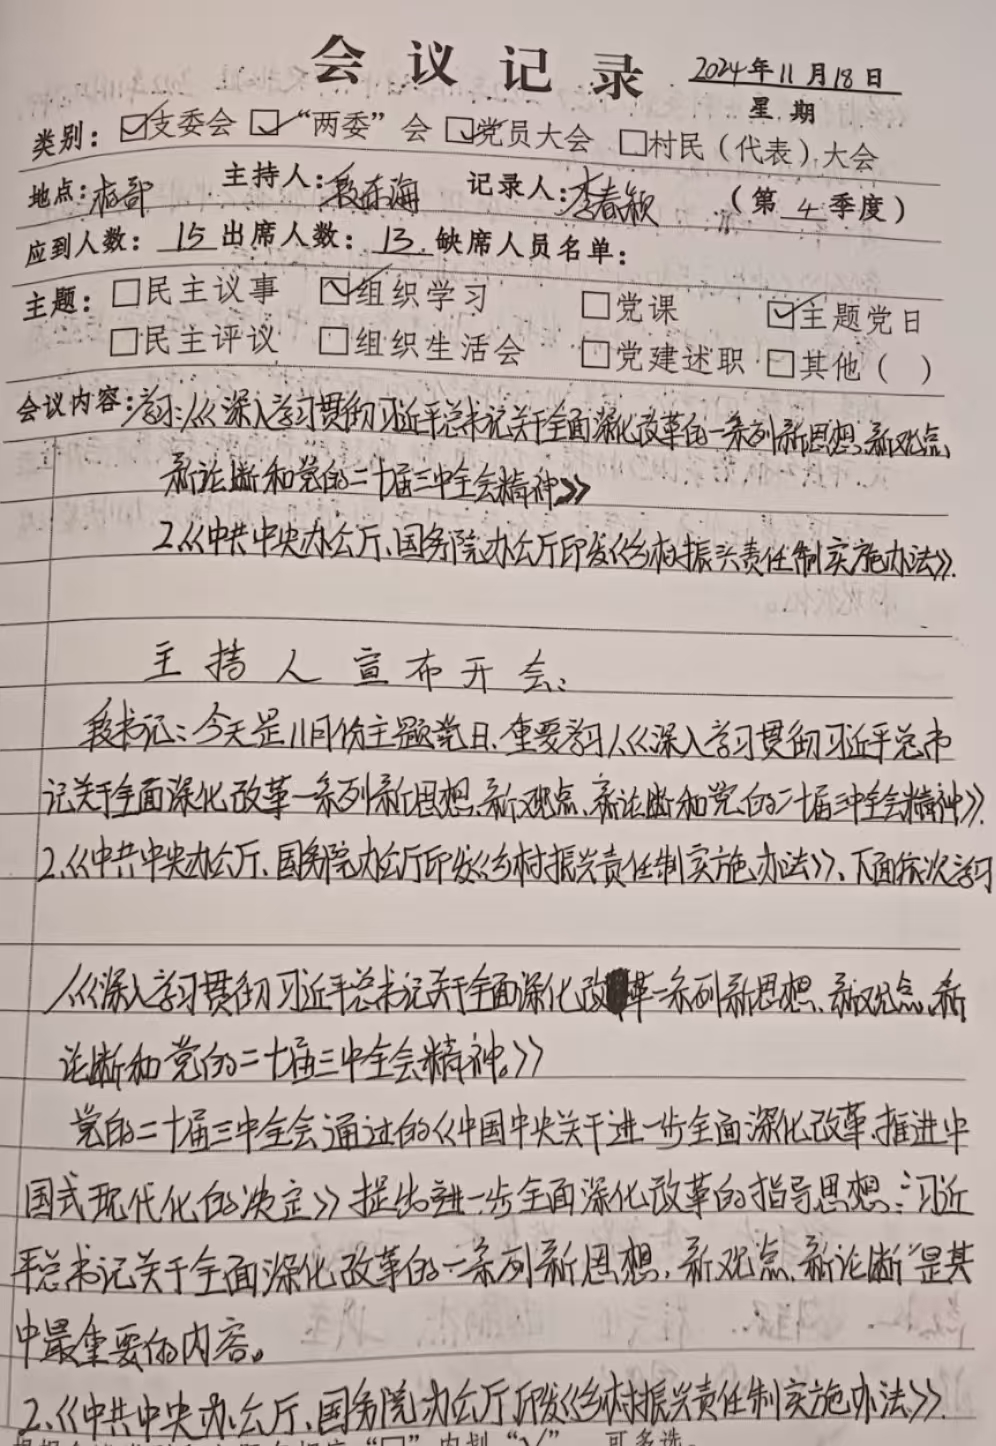 会议记录 2024年11月18日
星期
类别：☑支委会 ☑“两委”会 ☑党员大会 □村民（代表）大会
地点：村部 主持人：段东海 记录人：李春颖 （第 4 季度）
应到人数：15 出席人数：13 缺席人员名单：
主题：□民主议事 ☑组织学习 □党课 ☑主题党日
□民主评议 □组织生活会 □党建述职 □其他（ ）
会议内容：学习：1.《深入学习贯彻习近平总书记关于全面深化改革的一系列新思想、新观点、
新论断和党的二十届三中全会精神》
2.《中共中央办公厅、国务院办公厅印发《乡村振兴责任制实施办法》.
主持人宣布开会：
段书记：今天是11月份主题党日、重要学习1.《深入学习贯彻习近平总书
记关于全面深化改革一系列新思想、新观点、新论断和党的二十届三中全会精神》.
2.《中共中央办公厅、国务院办公厅印发《乡村振兴责任制实施办法》、下面依次学习
1.《深入学习贯彻习近平总书记关于全面深化改革一系列新思想、新观点、新
论断和党的二十届三中全会精神。》
党的二十届三中全会通过的《中国中央关于进一步全面深化改革、推进中
国式现代化的决定》提出进一步全面深化改革的指导思想：习近
平总书记关于全面深化改革的一系列新思想、新观点、新论断”是其
中最重要的内容。
2.《中共中央办公厅、国务院办公厅印发《乡村振兴责任制实施办法》.